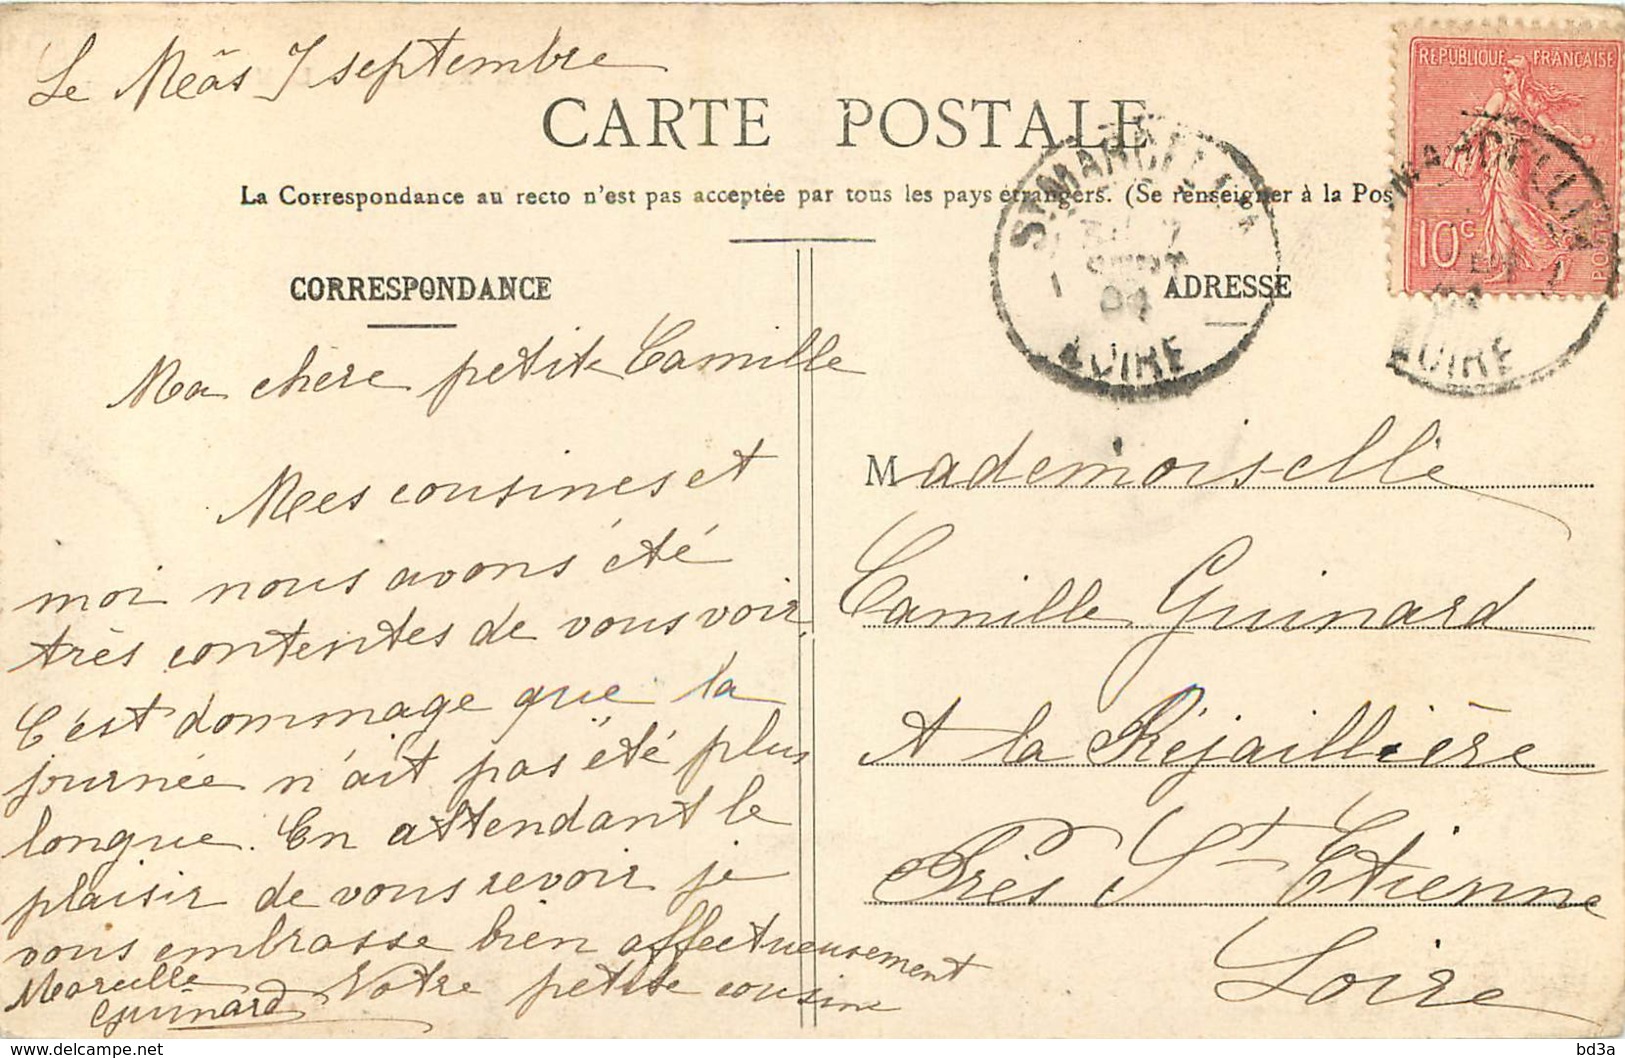 Le Meâs 7 septembre
CARTE POSTALE
La Correspondance au recto n'est pas acceptée par tous les pays étrangers. (Se renseigner à la Pos
CORRESPONDANCE
Ma chère petite Camille
Mes cousines et
moi nous avons été
très contentes de vous voir
C'est dommage que la
journée n'ait pas été plus
longue. En attendant le
plaisir de vous revoir je
vous embrasse bien affectueusement
Votre petite cousine
Marcelle
Guinard
ADRESSE
Mademoiselle
Camille Guinard
A la Réjaillière
Près St Etienne
Loire
REPUBLIQUE FRANÇAISE
10c
POSTES
ST MARCELLIN
7
SEPT
04
LOIRE
MARCELLIN
LOIRE
www.delcampe.net
bd3a